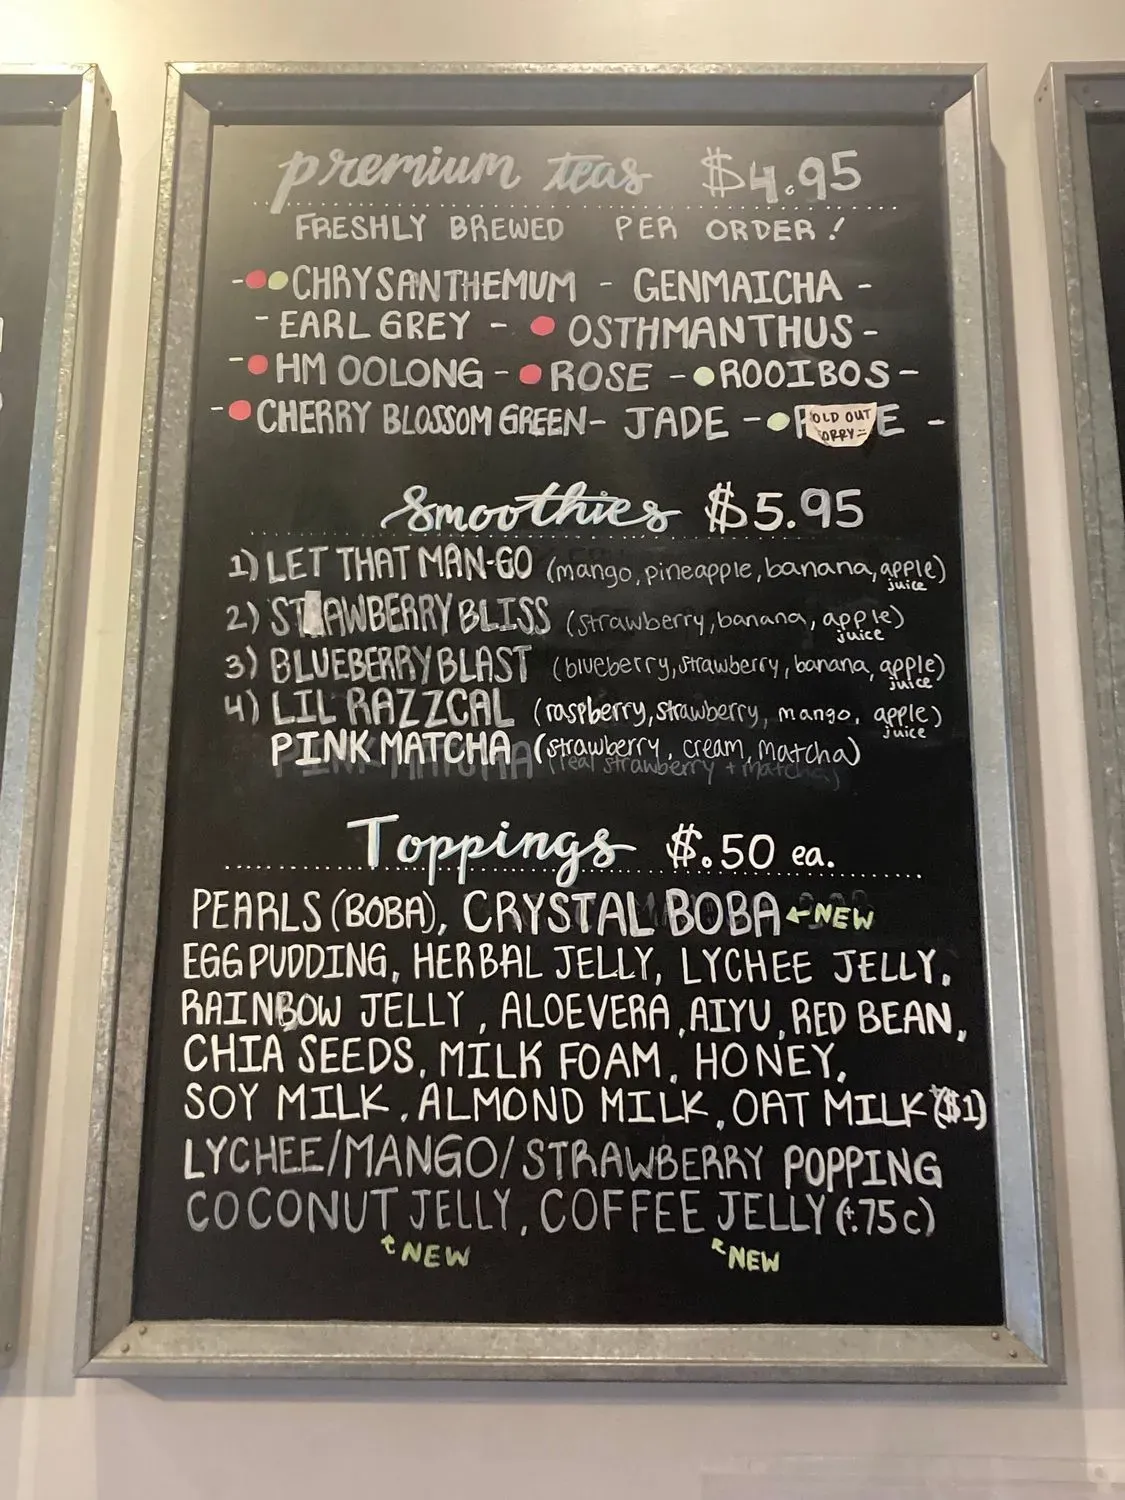 premium teas $4.95
FRESHLY BREWED PER ORDER!
- CHRYSANTHEMUM - GENMAICHA -
- EARL GREY - OSTHMANTHUS -
- HM OOLONG - ROSE - ROOIBOS -
- CHERRY BLOSSOM GREEN - JADE -
OLD OUT
ORRY
Smoothies $5.95
1) LET THAT MAN-GO (mango, pineapple, banana, apple juice)
2) STRAWBERRY BLISS (strawberry, banana, apple juice)
3) BLUEBERRY BLAST (blueberry, strawberry, banana, apple juice)
4) LIL RAZZCAL (raspberry, strawberry, mango, apple juice)
PINK MATCHA (strawberry, cream, matcha)
PINK MATCHA (real strawberry + matcha)
Toppings $.50 ea.
PEARLS (BOBA), CRYSTAL BOBA ←NEW
EGG PUDDING, HERBAL JELLY, LYCHEE JELLY,
RAINBOW JELLY, ALOEVERA, AIYU, RED BEAN,
CHIA SEEDS, MILK FOAM, HONEY,
SOY MILK, ALMOND MILK, OAT MILK ($1)
LYCHEE/MANGO/STRAWBERRY POPPING
COCONUT JELLY, COFFEE JELLY (+.75c)
NEW NEW